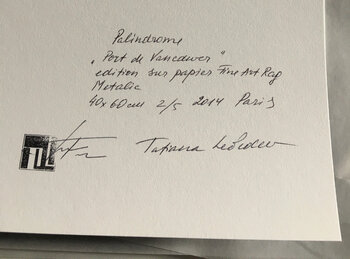 Palindrome
„Port de Vancouver"
edition sur papier Fine Art Rag
Metalic
40x60cm 2/5 2014 Paris
Tatiana Lebedev